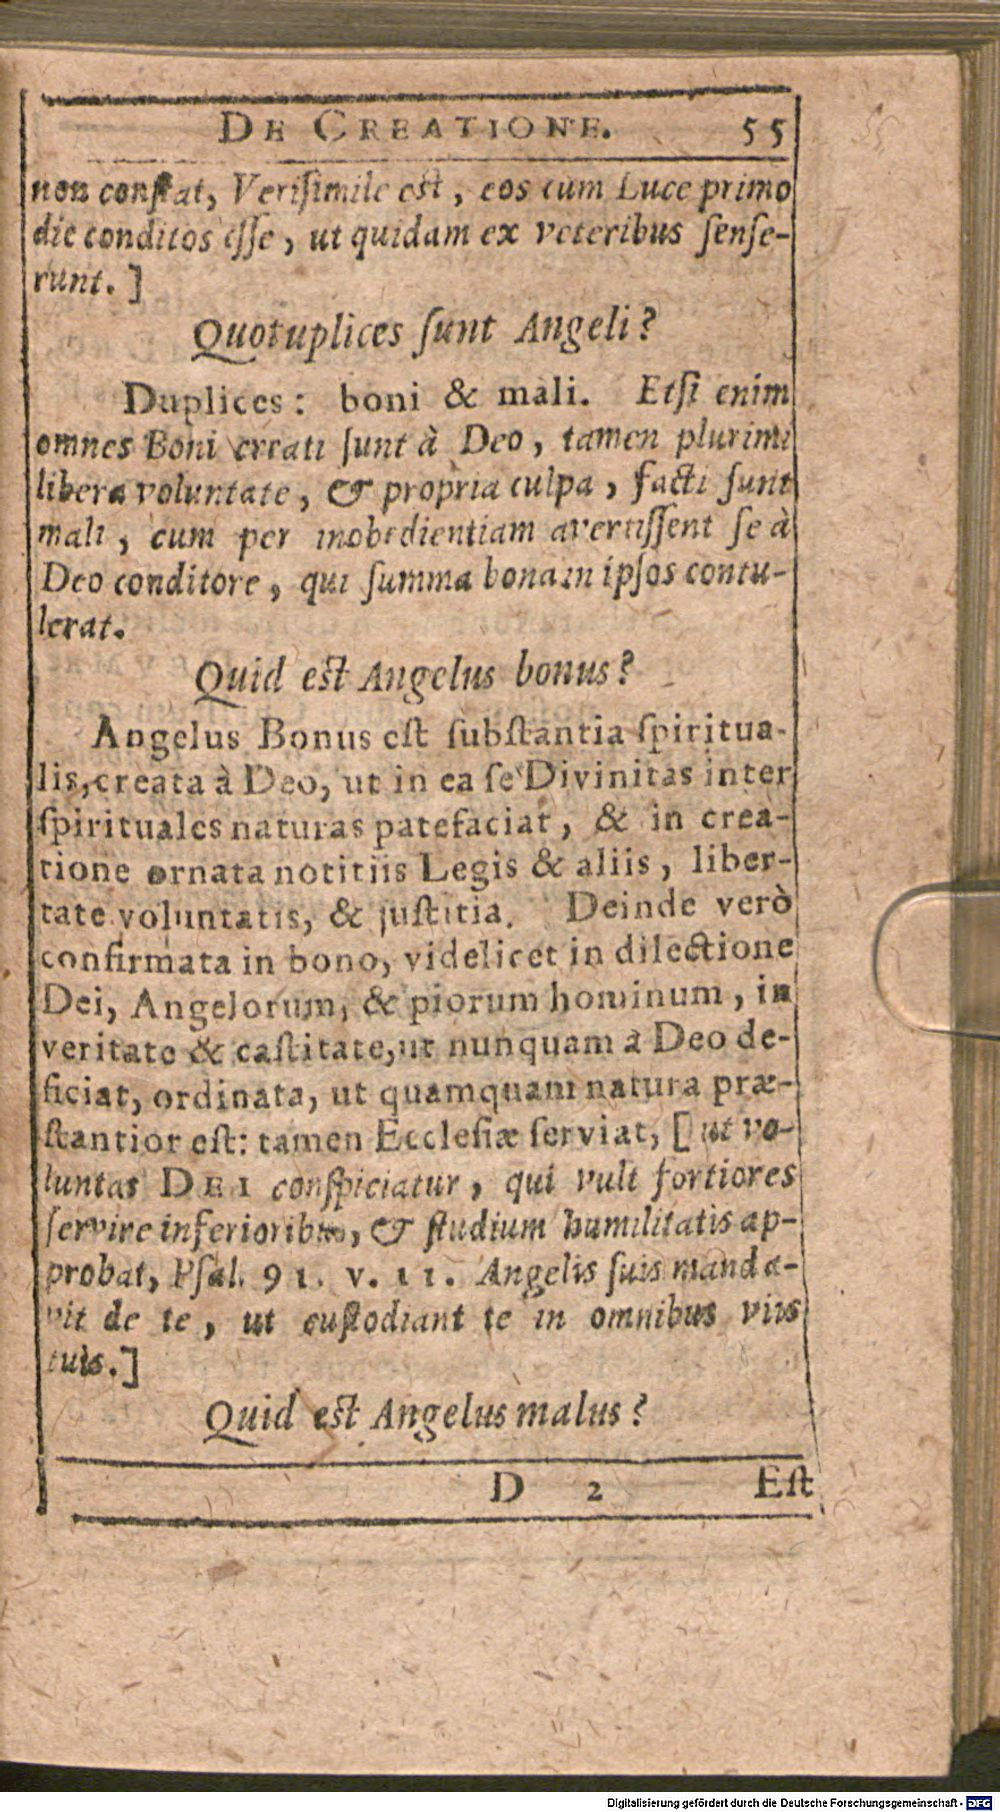 DE CREATIONE. 55
non constat, Verisimile est, eos cum Luce primo
die conditos esse, ut quidam ex veteribus sense-
runt.]
Quotuplices sunt Angeli?
Duplices: boni & mali. Etsi enim
omnes Boni creati sunt à Deo, tamen plurimi
libera voluntate, & propria culpa, facti sunt
mali, cum per inobedientiam avertissent se à
Deo conditore, qui summa bona in ipsos contu-
lerat.
Quid est Angelus bonus?
Angelus Bonus est substantia spiritua-
lis, creata à Deo, ut in ea se Divinitas inter
spirituales naturas patefaciat, & in crea-
tione ornata notitiis Legis & aliis, liber-
tate voluntatis, & justitia. Deinde verò
confirmata in bono, videlicet in dilectione
Dei, Angelorum, & piorum hominum, in
veritate & castitate, ut nunquam à Deo de-
ficiat, ordinata, ut quamquam natura præ-
stantior est: tamen Ecclesiæ serviat, [ut vo-
luntas DEI conspiciatur, qui vult fortiores
servire inferioribus, & studium humilitatis ap-
probat, Psal. 91. v. 11. Angelis suis manda-
vit de te, ut custodiant te in omnibus viis
tuis.]
Quid est Angelus malus?
D 2 Est
Digitalisierung gefördert durch die Deutsche Forschungsgemeinschaft - DFG